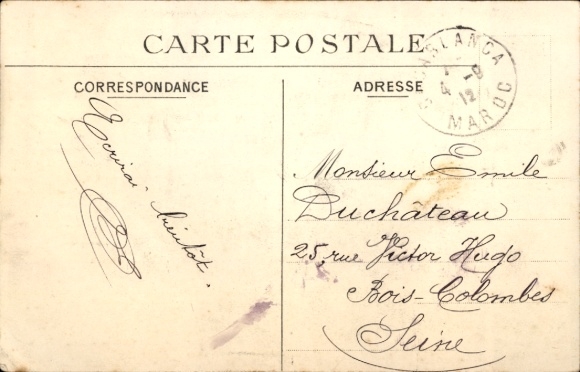 CARTE POSTALE
CORRESPONDANCE
ADRESSE
CASABLANCA
4 - 9
12
MAROC
Ecrirai bientôt.
Monsieur Emile
Duchâteau
25, rue Victor Hugo
Bois-Colombes
Seine